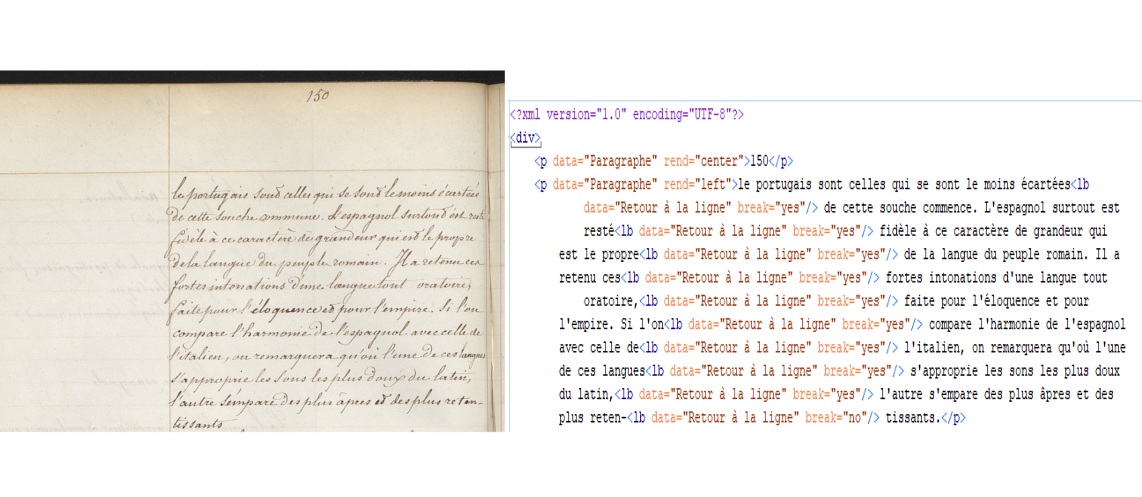 150
le portugais sont celles qui se sont le moins écartées
de cette souche commune. L'espagnol surtout est resté
fidèle à ce caractère de grandeur qui est le propre
de la langue du peuple romain. Il a retenu ces
fortes intonations d'une langue tout oratoire,
faite pour l'éloquence et pour l'empire. Si l'on
compare l'harmonie de l'espagnol avec celle de
l'italien, on remarquera qu'où l'une de ces langues
s'approprie les sons les plus doux du latin,
l'autre s'empare des plus âpres et des plus reten-
tissants
<?xml version="1.0" encoding="UTF-8"?>
<div>
<p data="Paragraphe" rend="center">150</p>
<p data="Paragraphe" rend="left">le portugais sont celles qui se sont le moins écartées<lb
data="Retour à la ligne" break="yes"/> de cette souche commence. L'espagnol surtout est
resté<lb data="Retour à la ligne" break="yes"/> fidèle à ce caractère de grandeur qui
est le propre<lb data="Retour à la ligne" break="yes"/> de la langue du peuple romain. Il a
retenu ces<lb data="Retour à la ligne" break="yes"/> fortes intonations d'une langue tout
oratoire,<lb data="Retour à la ligne" break="yes"/> faite pour l'éloquence et pour
l'empire. Si l'on<lb data="Retour à la ligne" break="yes"/> compare l'harmonie de l'espagnol
avec celle de<lb data="Retour à la ligne" break="yes"/> l'italien, on remarquera qu'où l'une
de ces langues<lb data="Retour à la ligne" break="yes"/> s'approprie les sons les plus doux
du latin,<lb data="Retour à la ligne" break="yes"/> l'autre s'empare des plus âpres et des
plus reten-<lb data="Retour à la ligne" break="no"/> tissants.</p>